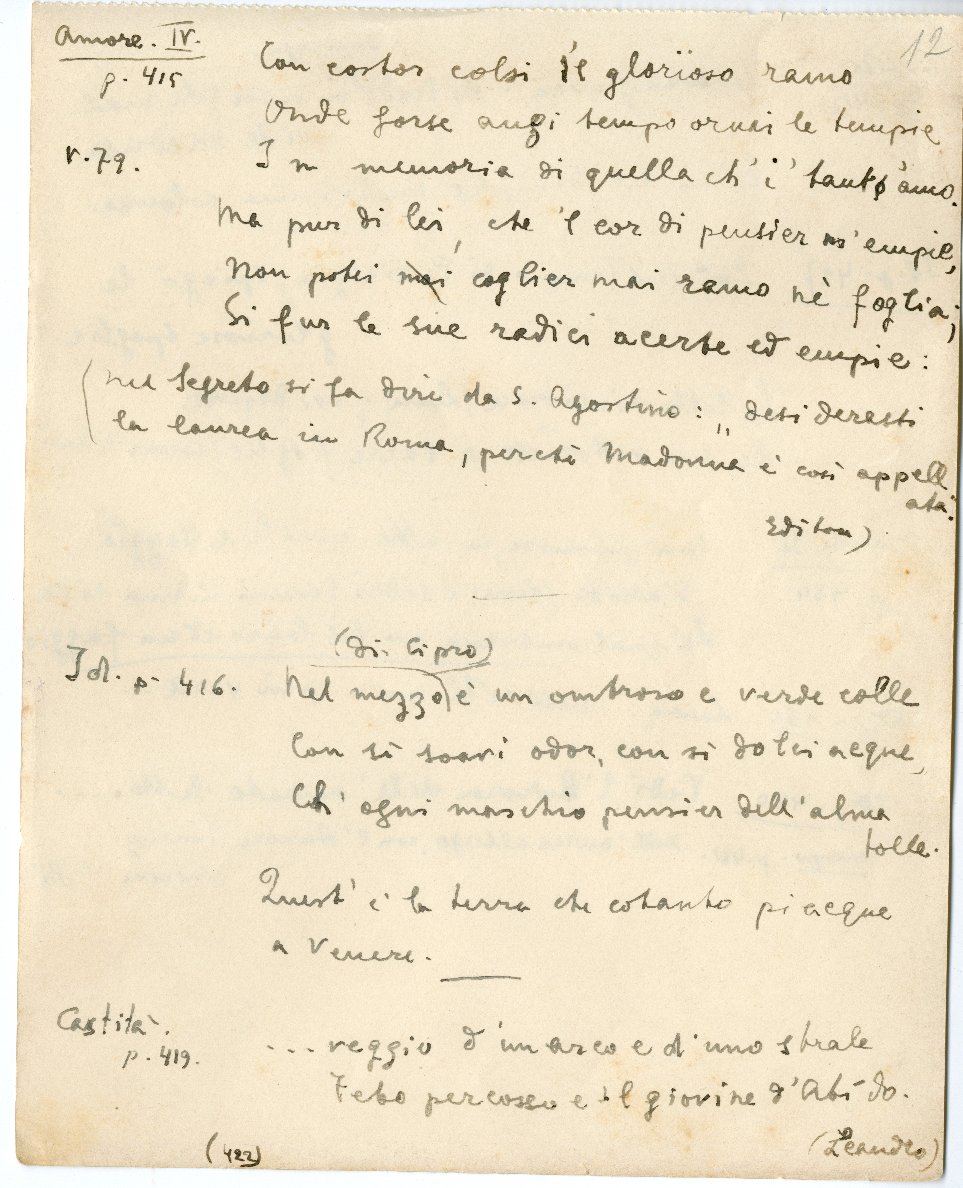 12
Amore. IV.
p. 415
Con costor colsi il glorïoso ramo
Onde forse anzi tempo ornai le tempie
v. 79.
In memoria di quella ch' i' tant' amo.
Ma pur di lei, che 'l cor di pensier m' empie,
Non potei mai coglier mai ramo nè foglia;
Si fur le sue radici acerbe ed empie:
(Nel Segreto si fa dire da S. Agostino: „ desiderasti
la laurea in Roma, perchè Madonna è così appell
ata".
Editore)
(di Cipro)
Id. p. 416.
Nel mezzo) è un ombroso e verde colle
Con sì soavi odor, con sì dolci acque,
Ch' ogni maschio pensier dell' alma
tolle.
Quest' è la terra che cotanto piacque
a Venere.
Castità.
p. 419.
... veggio d' un arco e d' uno strale
Febo percosso e 'l giovine d' Abido.
(Leandro)
(422)